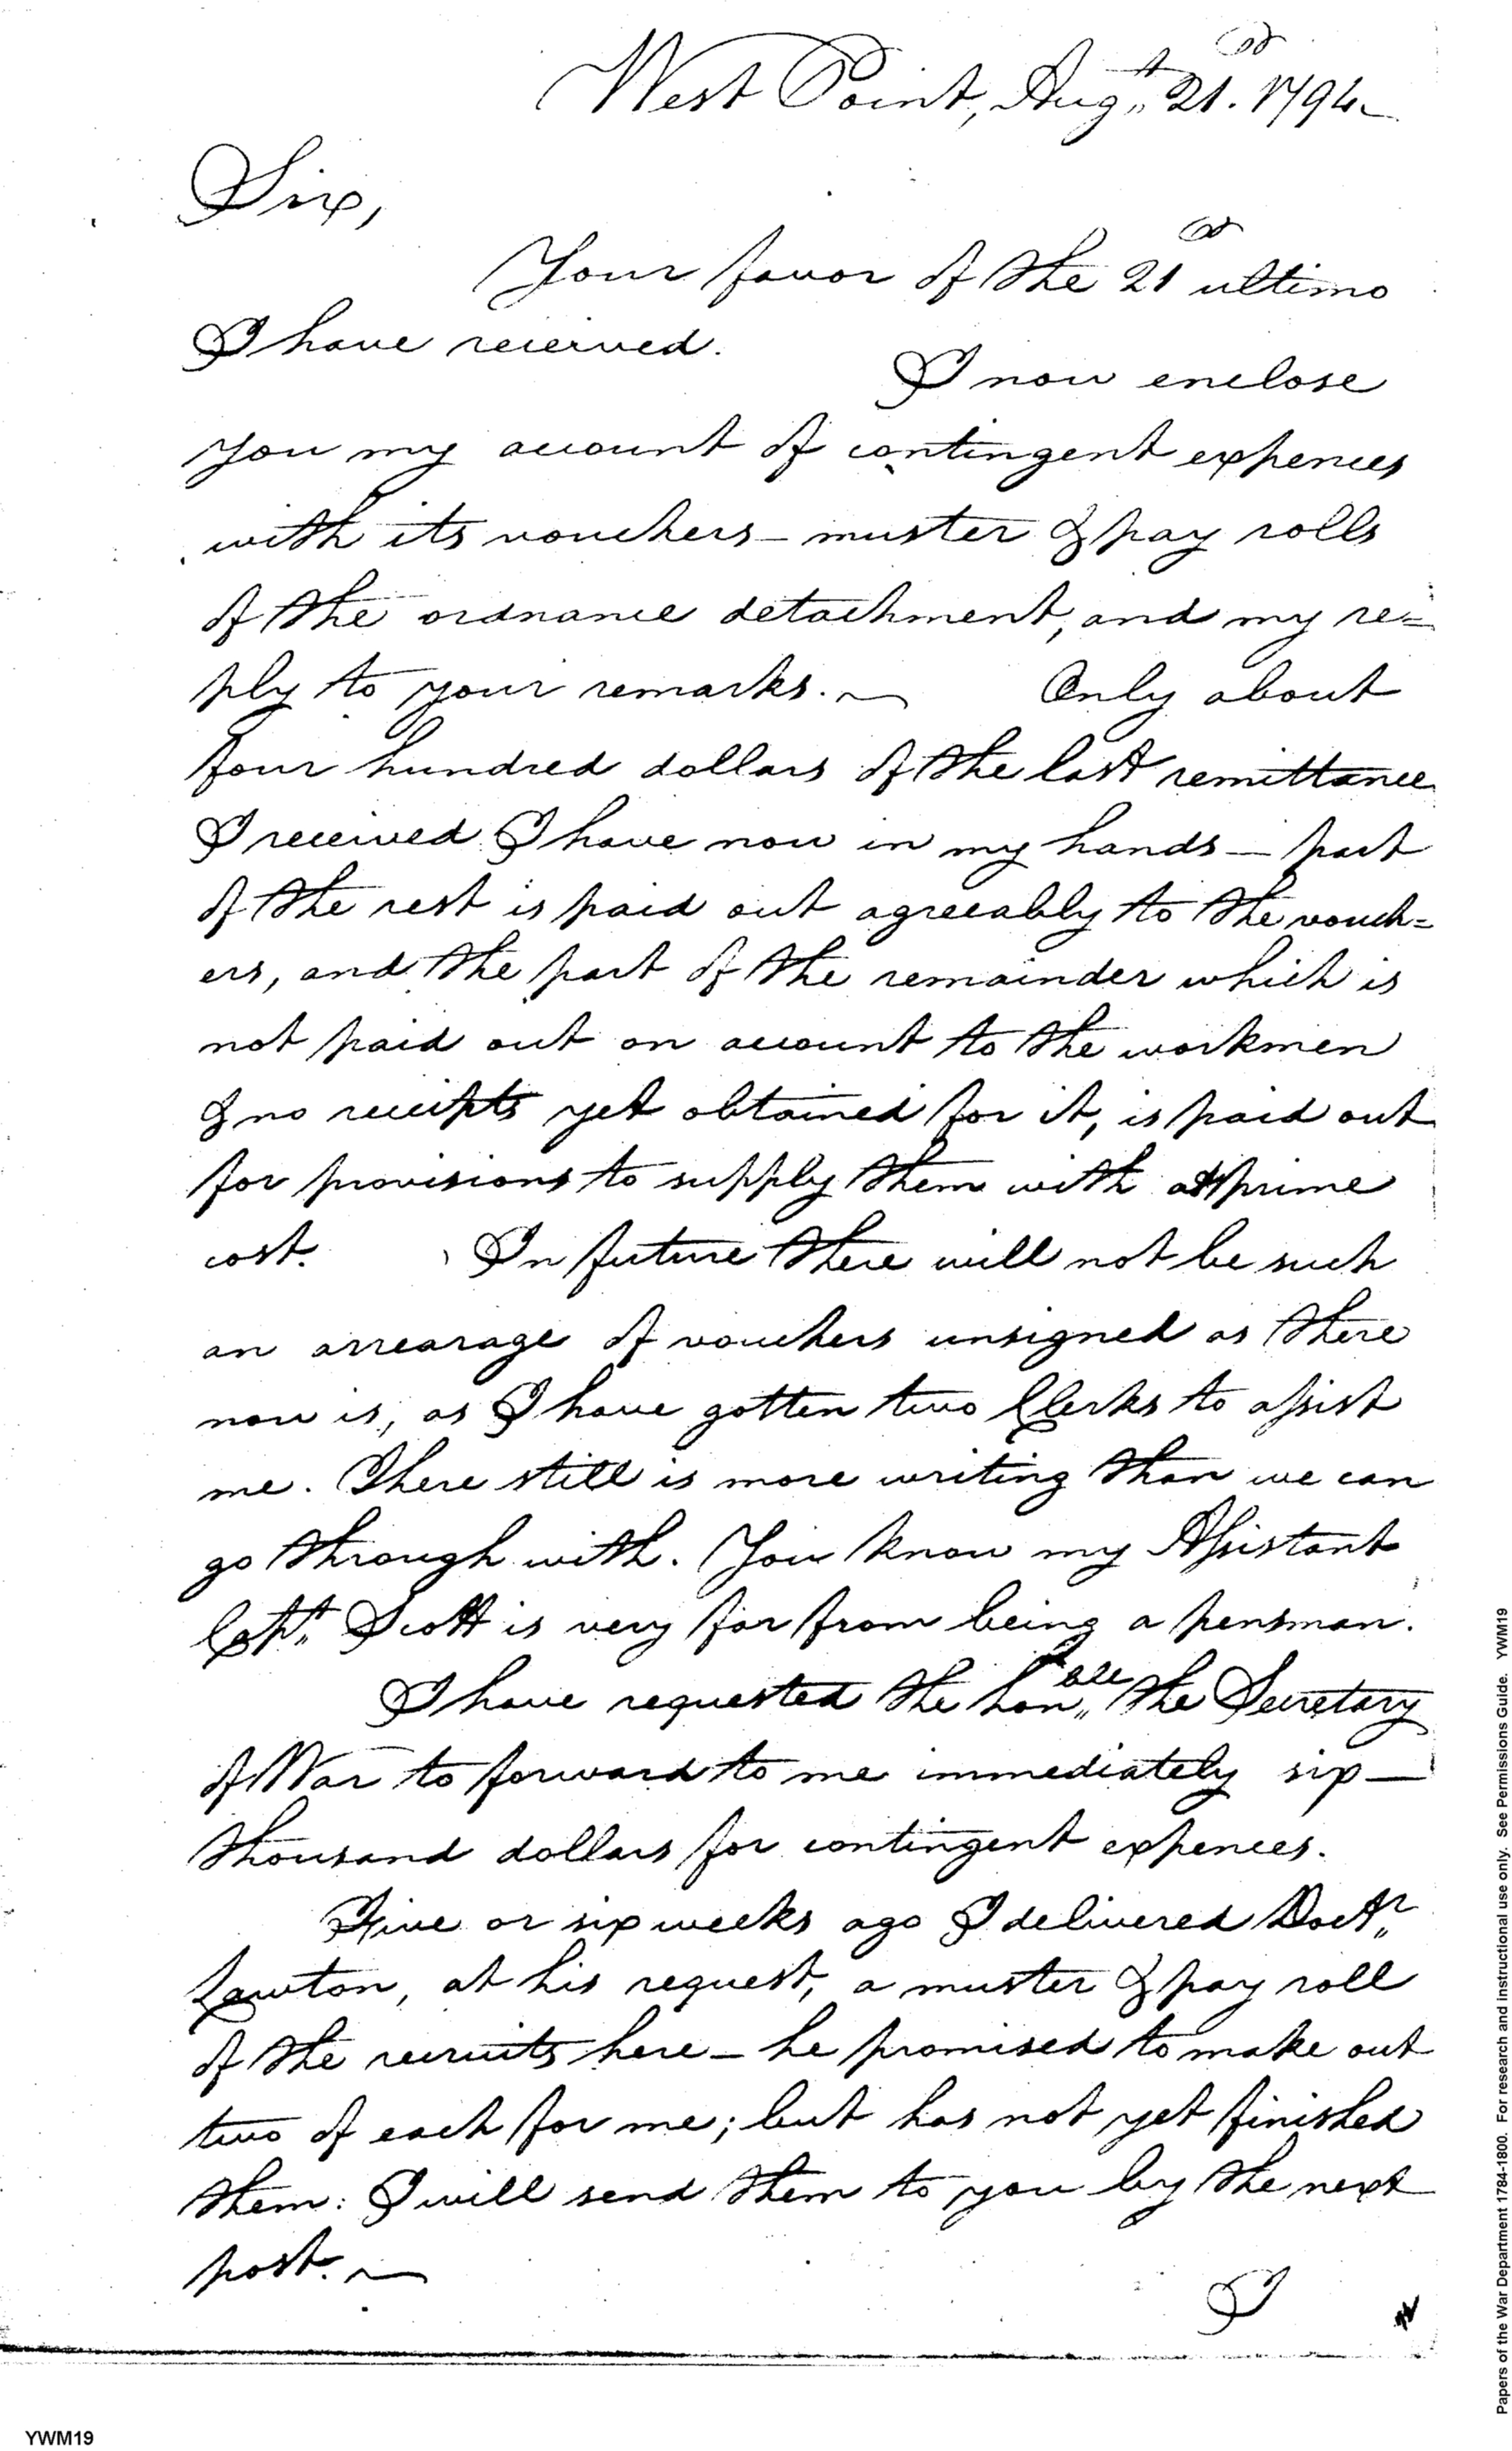 West Point, Augt. 21st. 1794.
Sir,
Your favor of the 21st ultimo
I have received.
I now enclose
you my account of contingent expences
with its vouchers — muster & pay rolls
of the ordnance detachment, and my re=
ply to your remarks. ~ Only about
four hundred dollars of the last remittance
I received I have now in my hands — part
of the rest is paid out agreeably to the vouch=
ers, and the part of the remainder which is
not paid out on account to the workmen
& no receipts yet obtained for it, is paid out
for provisions to supply them with at prime
cost. In future there will not be such
an arrearage of vouchers unsigned as there
now is, as I have gotten two Clerks to assist
me. There still is more writing than we can
go through with. You know my Assistant
Capt. Scott is very far from being a pensman.
I have requested the honble the Secretary
of War to forward to me immediately six —
thousand dollars for contingent expences.
Five or six weeks ago I delivered Doctr
Lawton, at his request, a muster & pay roll
of the recruits here — he promised to make out
two of each for me; but has not yet finished
them: I will send them to you by the next
post. ~
I
Papers of the War Department 1784-1800. For research and instructional use only. See Permissions Guide. YWM19
YWM19